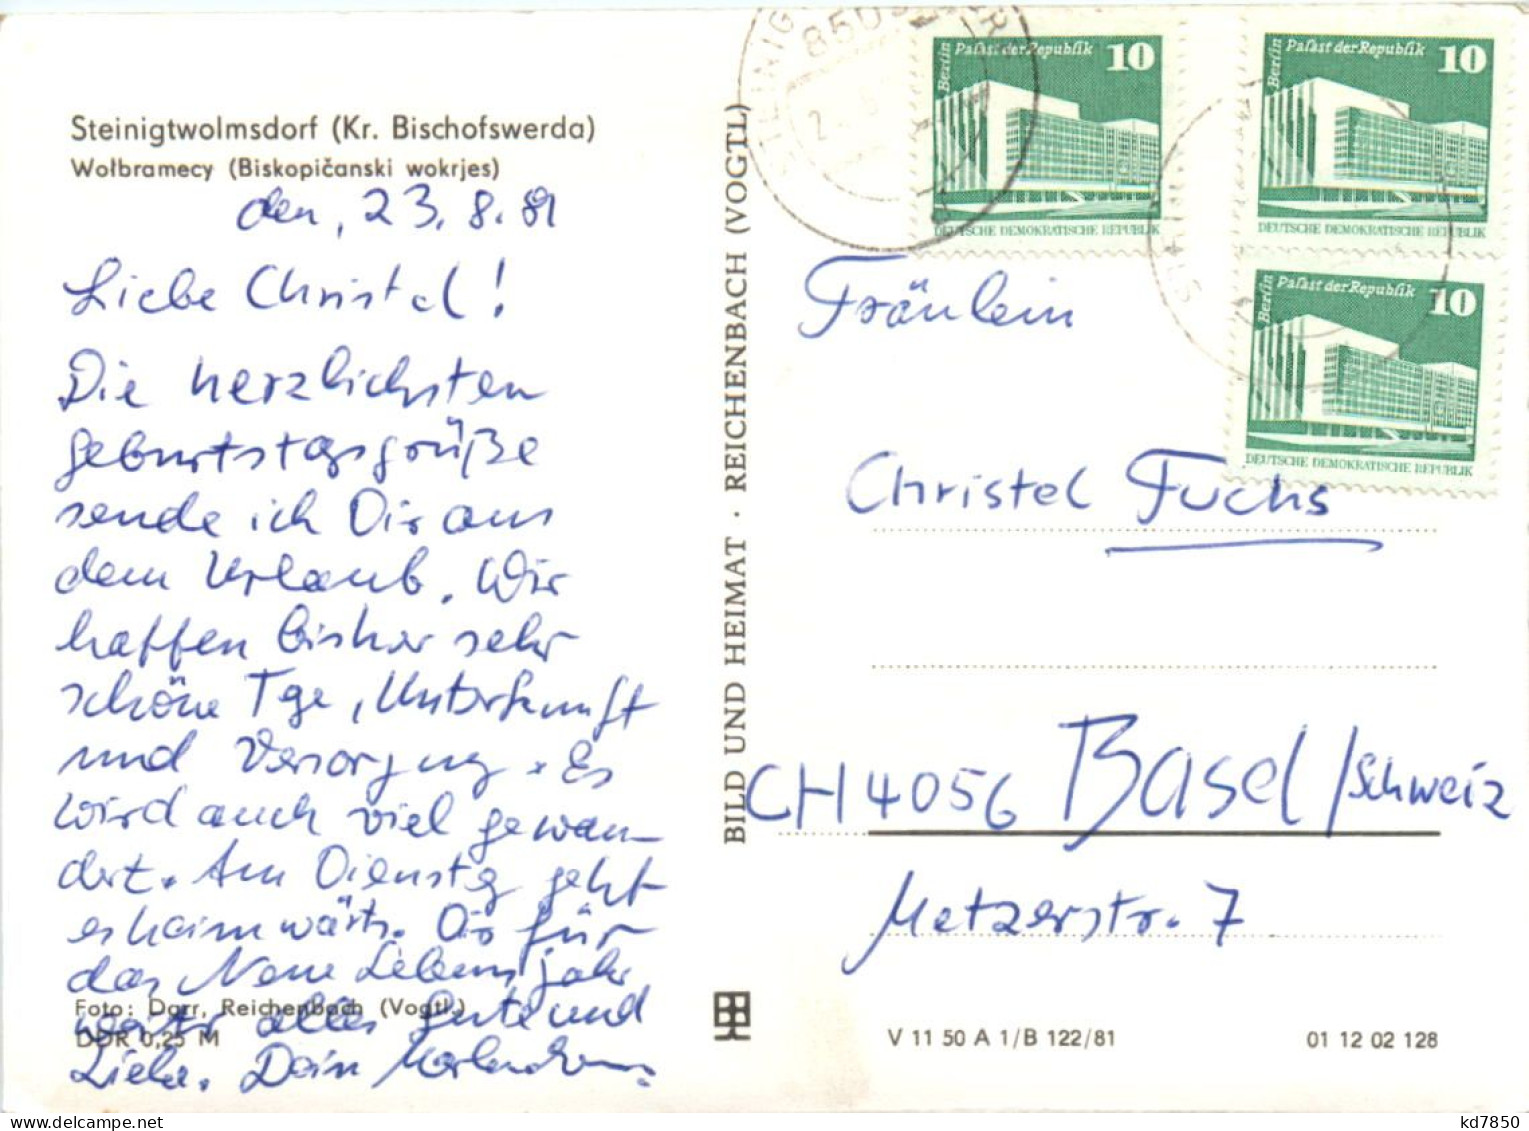 Steinigtwolmsdorf (Kr. Bischofswerda)
Wołbramecy (Biskopičanski wokrjes)
den, 23.8.81
Liebe Christel!
Die herzlichsten
Geburtstagsgrüße
sende ich Dir aus
dem Urlaub. Wir
hatten bisher sehr
schöne Tge, Unterkunft
und Versorgung. Es
wird auch viel gewan-
dert. Am Dienstg geht
es heimwärts. Dir für
das Neue Lebensjahr
weiter alles Gute und
Liebe. Dein
Foto: Darr, Reichenbach (Vogtl.)
DDR 0,25 M
BILD UND HEIMAT · REICHENBACH (VOGTL)
Berlin Palast der Republik 10
DEUTSCHE DEMOKRATISCHE REPUBLIK
Berlin Palast der Republik 10
DEUTSCHE DEMOKRATISCHE REPUBLIK
Berlin Palast der Republik 10
DEUTSCHE DEMOKRATISCHE REPUBLIK
Fräulein
Christel Fuchs
CH 4056 Basel/Schweiz
Metzerstr. 7
V 11 50 A 1/B 122/81
01 12 02 128
kd7850